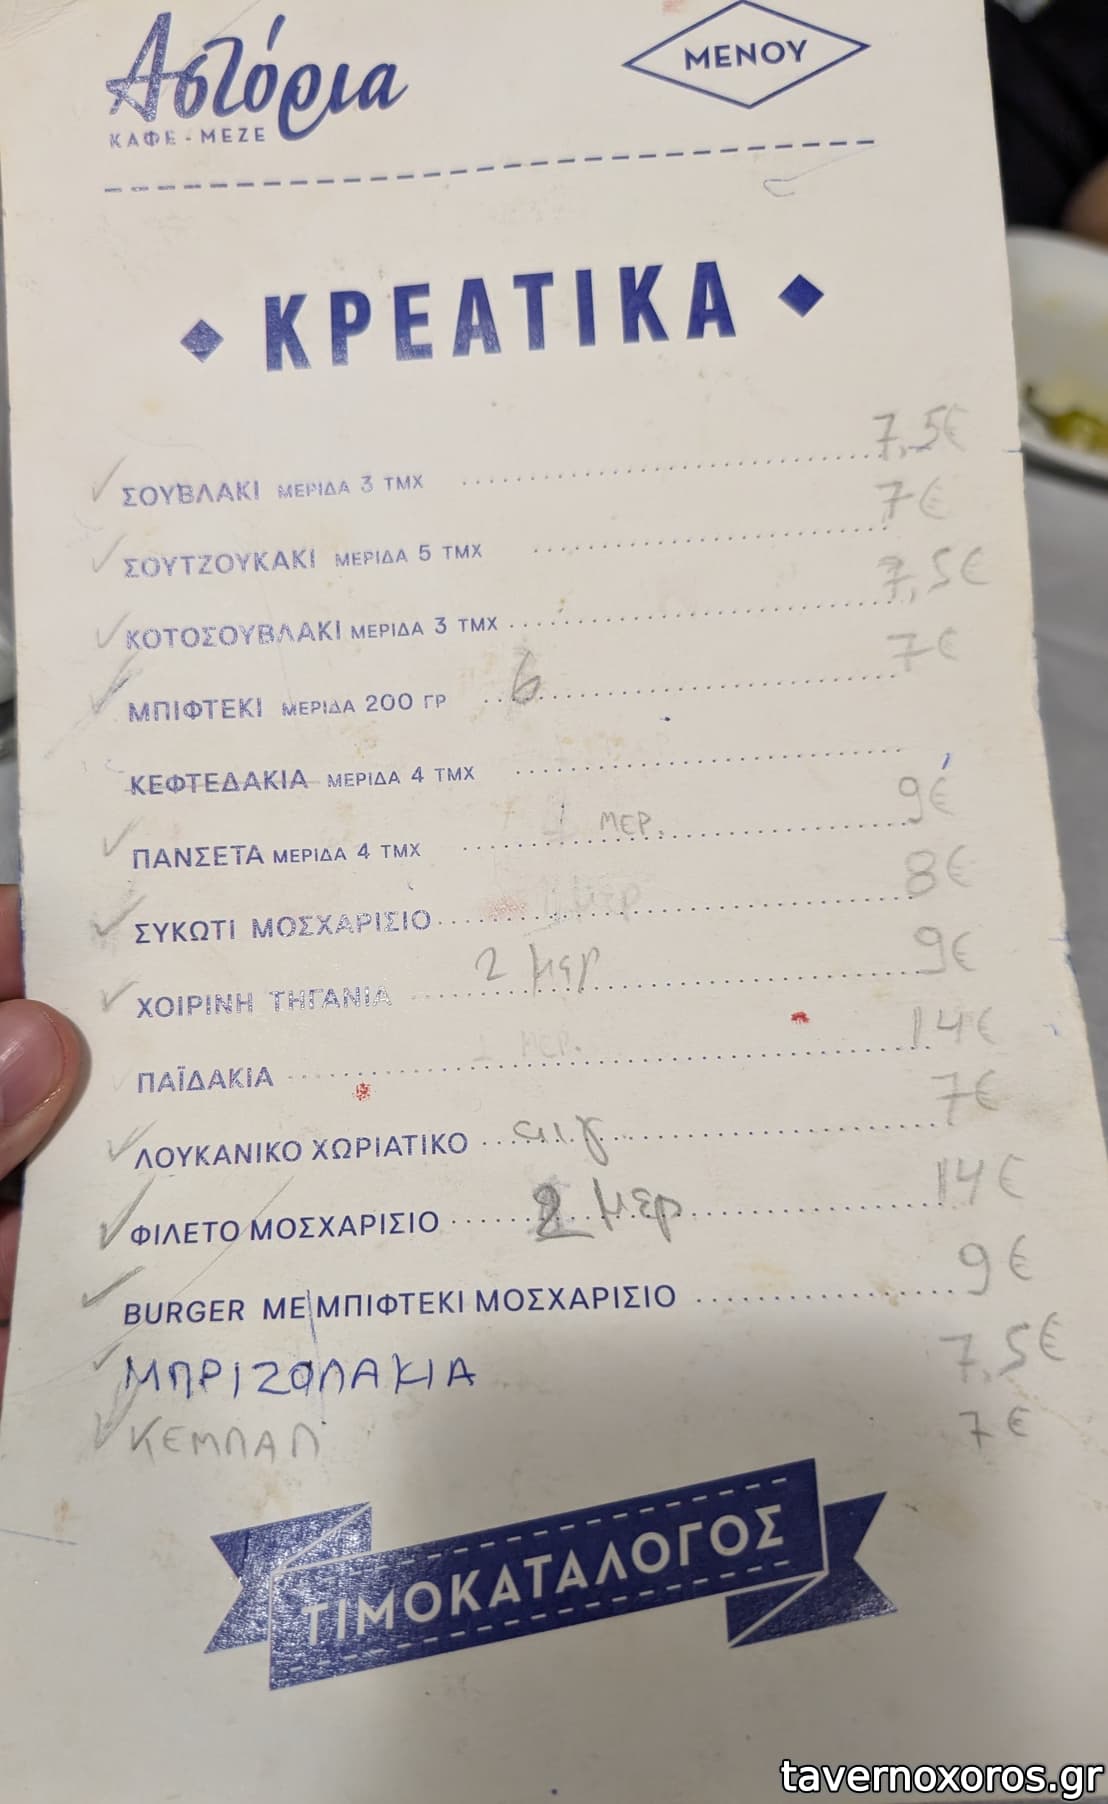 Αστόρια
ΚΑΦΕ - ΜΕΖΕ
ΜΕΝΟΥ
ΚΡΕΑΤΙΚΑ
ΣΟΥΒΛΑΚΙ ΜΕΡΙΔΑ 3 ΤΜΧ 7,5€
ΣΟΥΤΖΟΥΚΑΚΙ ΜΕΡΙΔΑ 5 ΤΜΧ 7€
ΚΟΤΟΣΟΥΒΛΑΚΙ ΜΕΡΙΔΑ 3 ΤΜΧ 7,5€
ΜΠΙΦΤΕΚΙ ΜΕΡΙΔΑ 200 ΓΡ 6 7€
ΚΕΦΤΕΔΑΚΙΑ ΜΕΡΙΔΑ 4 ΤΜΧ
ΠΑΝΣΕΤΑ ΜΕΡΙΔΑ 4 ΤΜΧ 1 ΜΕΡ. 9€
ΣΥΚΩΤΙ ΜΟΣΧΑΡΙΣΙΟ 1 μερ 8€
ΧΟΙΡΙΝΗ ΤΗΓΑΝΙΑ 2 μερ 9€
ΠΑΪΔΑΚΙΑ 1 ΜΕΡ. 14€
ΛΟΥΚΑΝΙΚΟ ΧΩΡΙΑΤΙΚΟ 7€
ΦΙΛΕΤΟ ΜΟΣΧΑΡΙΣΙΟ 2 μερ 14€
BURGER ΜΕ ΜΠΙΦΤΕΚΙ ΜΟΣΧΑΡΙΣΙΟ 9€
ΜΠΡΙΖΟΛΑΚΙΑ 7,5€
ΚΕΜΠΑΠ 7€
ΤΙΜΟΚΑΤΑΛΟΓΟΣ
tavernoxoros.gr